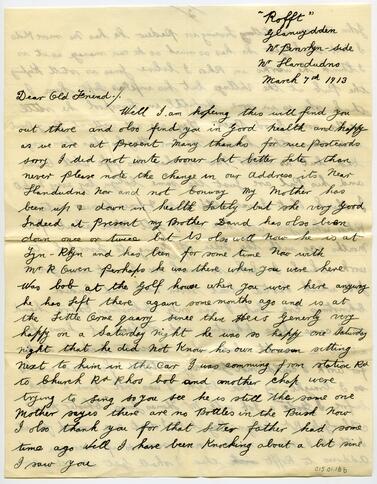 "Rofft"
Glanwydden
Nr Penrhyn-side
Nr Llandudno
March 7nd 1913
Dear Old Friend/.
Well I am hopeing this will find you
out there and also find you in Good health and happy
as we are at Present Many thanks for nice Postcards
sorry I did not write sooner but better late than
never Please note the change in our Address its Near
Llandudno Nor and not Conway My Mother has
been up & down in health lately but she very Good
Indeed at Present my Brother David has also been
down once or twice but is also well Now he is at
Tyn-Rhyn and has been for some time Now with
Mr R Owen Perhaps he was there when you were here
Was bob at the Golf house when you were here anyway
he has left there again some months ago and is at
the Little Orme since then Heis Generly very
happy on a Saturday night he was so happy one Saturday
night that he did Not Know his own Cousan setting
next to him in the Car I was comming from station Rd
to Church Rd Rhos bob and another chap were
trying to sing so you see he is still the same one
Mother seyes there are no Bottles in the Bush Now
I also thank you for that father had some
time ago Well I have been Knocking about a bit sine
I saw you
015.01.18b